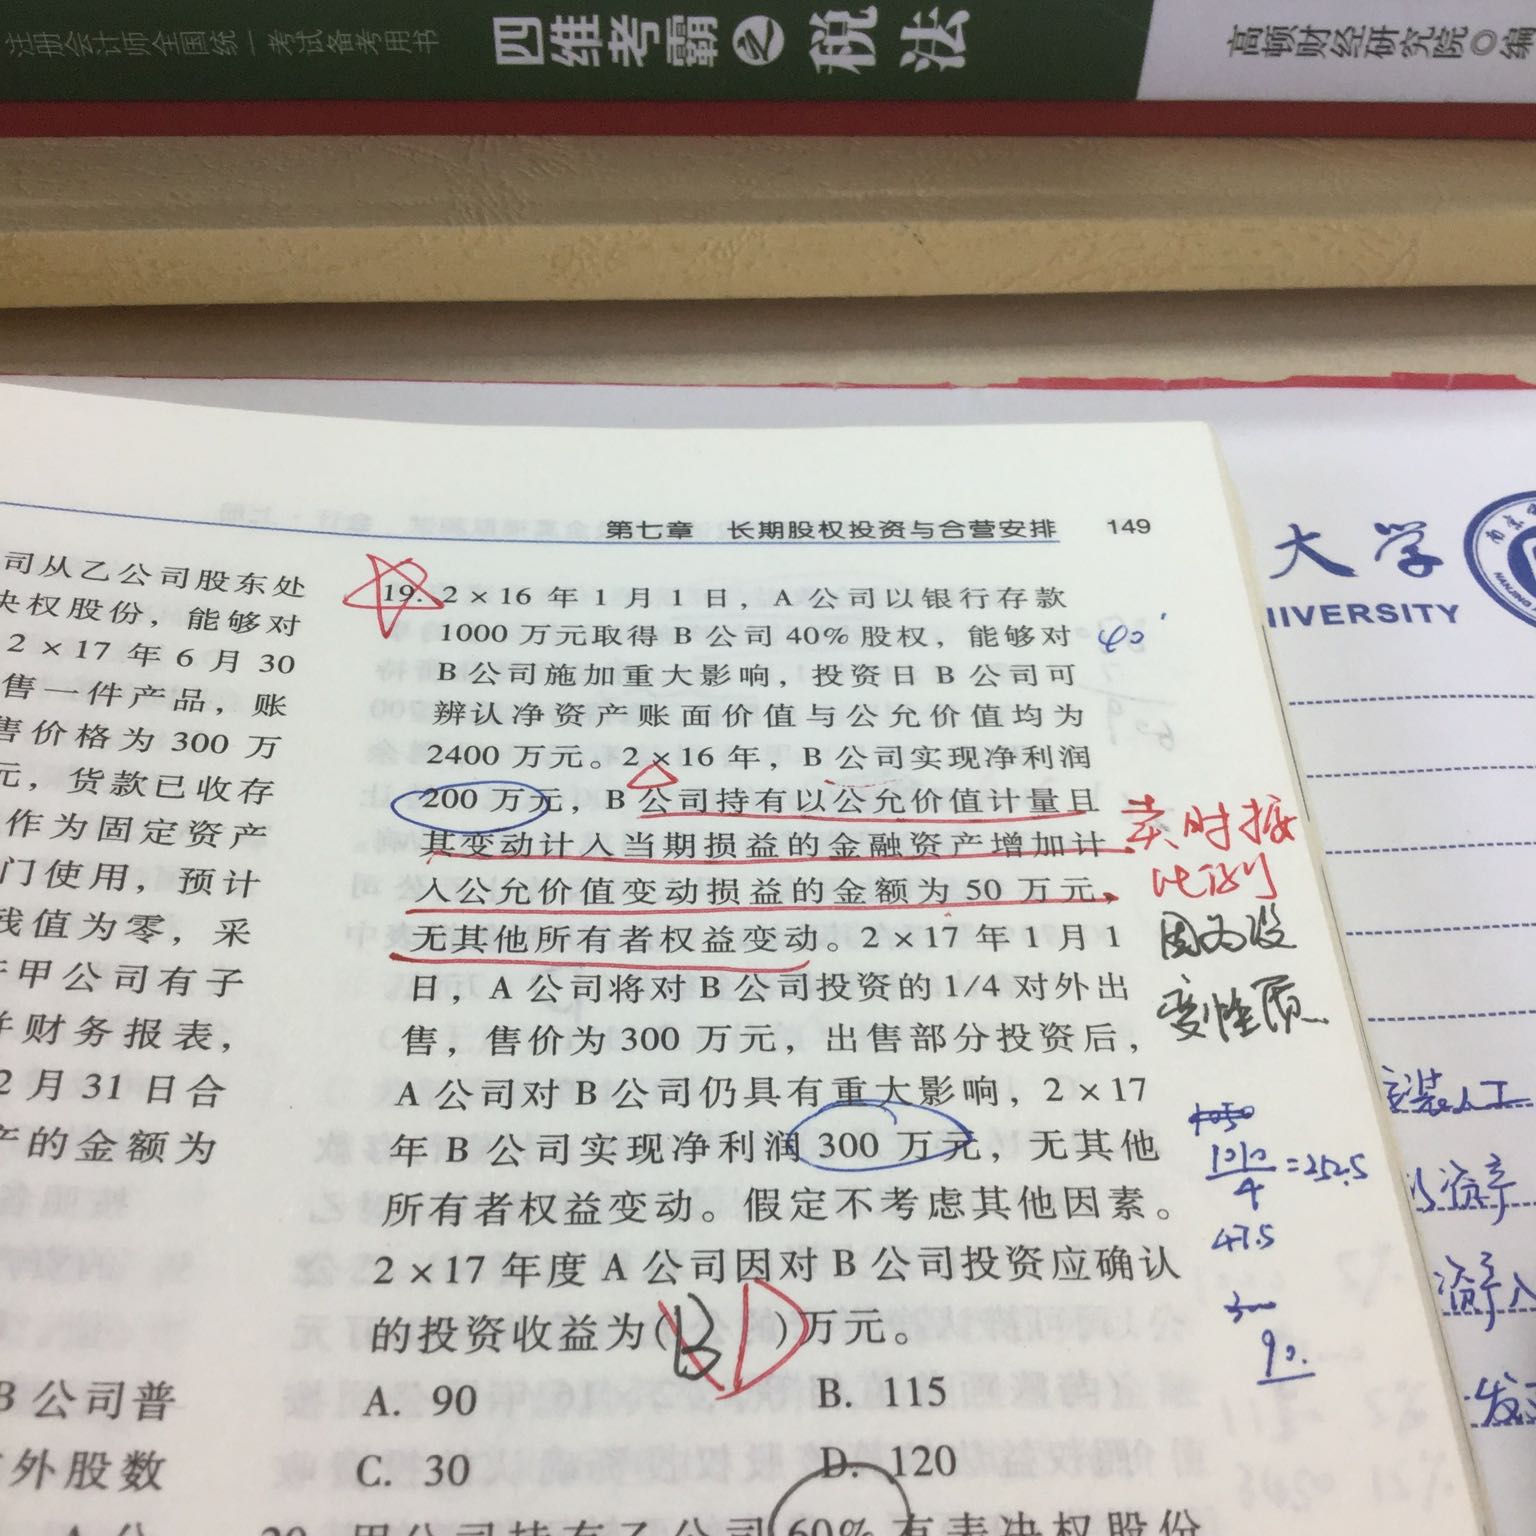 注册会计师全国统一考试备考用书
四维考霸之税法
高顿财经研究院◎编
第七章 长期股权投资与合营安排 149
司从乙公司股东处
决权股份，能够对
2×17年6月30
售一件产品，账
售价格为300万
元，货款已收存
作为固定资产
门使用，预计
残值为零，采
甲公司有子
并财务报表，
2月31日合
产的金额为
B公司普
外股数
19. 2×16年1月1日，A公司以银行存款
1000万元取得B公司40%股权，能够对
B公司施加重大影响，投资日B公司可
辨认净资产账面价值与公允价值均为
2400万元。2×16年，B公司实现净利润
200万元，B公司持有以公允价值计量且
其变动计入当期损益的金融资产增加计
入公允价值变动损益的金额为50万元，
无其他所有者权益变动。2×17年1月1
日，A公司将对B公司投资的1/4对外出
售，售价为300万元，出售部分投资后，
A公司对B公司仍具有重大影响，2×17
年B公司实现净利润300万元，无其他
所有者权益变动。假定不考虑其他因素。
2×17年度A公司因对B公司投资应确认
的投资收益为(B D)万元。
A. 90 B. 115
C. 30 D. 120
20. 甲公司持有乙公司60%有表决权股份
40
卖时按
比例
因为没
变性质
1050
1010/4=252.5
47.5
300
90.
大学
UNIVERSITY
安装人工
资产
资产入
发